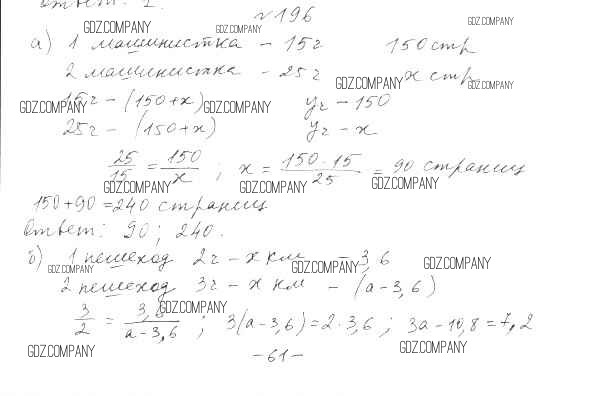 Ответ: 2.
№196
GDZ.COMPANY GDZ.COMPANY GDZ.COMPANY
а) 1 машинистка - 15г 150 стр
2 машинистка - 25г х стр
GDZ.COMPANY GDZ.COMPANY
15г - (150+х) уг - 150
GDZ.COMPANY GDZ.COMPANY
25г - (150+х) уг - х
25/15 = 150/х ; х = 150·15/25 = 90 страниц
GDZ.COMPANY GDZ.COMPANY GDZ.COMPANY
150+90=240 страниц
Ответ: 90; 240.
б) 1 пешеход 2г - х км - 3,6
GDZ.COMPANY GDZ.COMPANY GDZ.COMPANY
2 пешеход 3г - х км - (а-3,6)
GDZ.COMPANY
3/2 = 3,6/а-3,6 ; 3(а-3,6)=2·3,6 ; 3а-10,8=7,2
GDZ.COMPANY GDZ.COMPANY
-61-